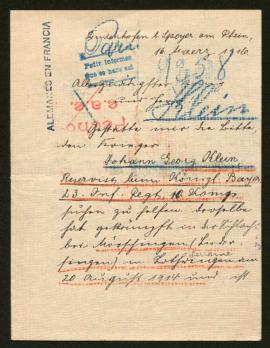 ALEMANES EN FRANCIA
Dudenhofen b. Speyer am Rhein,
16. Maerz, 1916.
Paris
Petit informes
9358
Allergnädigster
Klein
Gestatte mir die Bitte
den Krieger
Johann Georg Klein
Reservist beim Königl. Bayer
23. Inf. Regt, 10. Komp.
suchen zu helfen, derselbe
hat gekämpft in der Schlacht
bei Mörchingen
in Lothringen am
20 August 1914 und ist